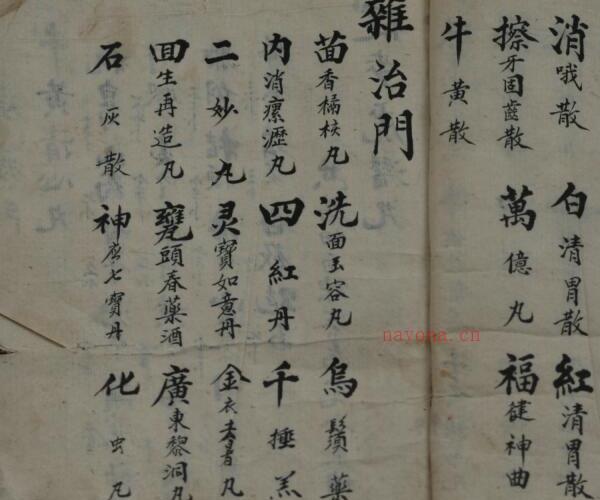 消哦散 白清胃散 紅清胃散
擦牙固齒散 萬億丸 福健神曲
牛黃散
雜治門
茴香橘核丸 洗面玉容丸 烏鬚藥
內消瘰癧丸 四紅丹 千捶羔
二妙丸 灵寶如意丹 金衣暑丸
囬生再造丸 甕頭春藥酒 廣東黎洞丸
石灰散 神七寶丹 化虫丸
nayona.cn